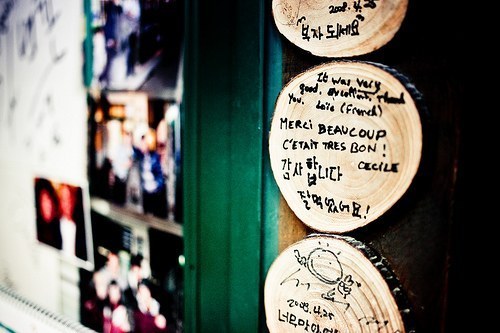 2008.4.25
"부자 되세요"
It was very
good. excellent, thank
you. Loïc (French)
MERCI BEAUCOUP
C'ETAIT TRES BON!
CECILE
감사합니다
잘먹었어요!
2008.4.25